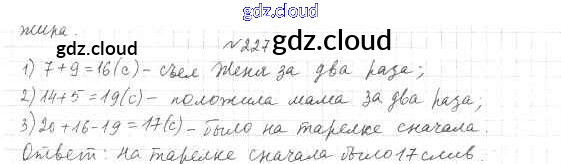 gdz.cloud
жира.
gdz.cloud
№227
gdz.cloud
1) 7+9=16(с) – съел Женя за два раза;
2) 14+5=19(с) – положила мама за два раза;
3) 20+16-19=17(с) – было на тарелке сначала.
Ответ: на тарелке сначала было 17 слив.